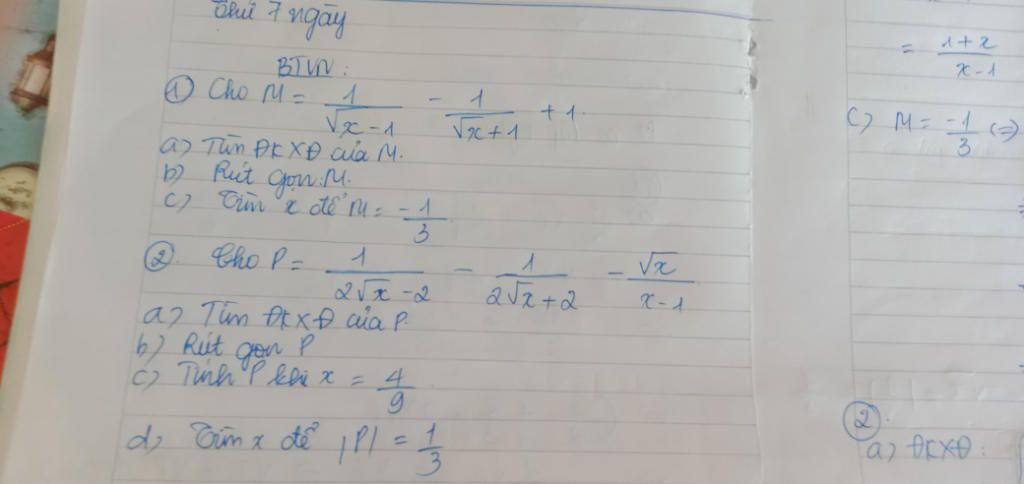 Thứ 7 ngày
BTVN:
① Cho M = 1/(√x - 1) - 1/(√x + 1) + 1.
a) Tìm ĐKXĐ của M.
b) Rút gọn M.
c) Tìm x để M = -1/3
② Cho P = 1/(2√x - 2) - 1/(2√x + 2) - √x/(x - 1)
a) Tìm ĐKXĐ của P.
b) Rút gọn P
c) Tính P khi x = 4/9
d) Tìm x để |P| = 1/3
= (1 + x)/(x - 1)
c) M = -1/3 (=)
②.
a) ĐKXĐ: